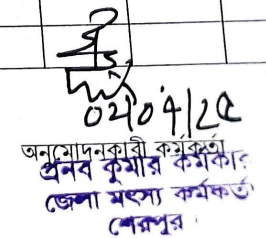 ০২/০৪/২৫
অনুমোদনকারী কর্মকর্তা
প্রনব কুমার কর্মকার
জেলা মৎস্য কর্মকর্তা
শেরপুর।